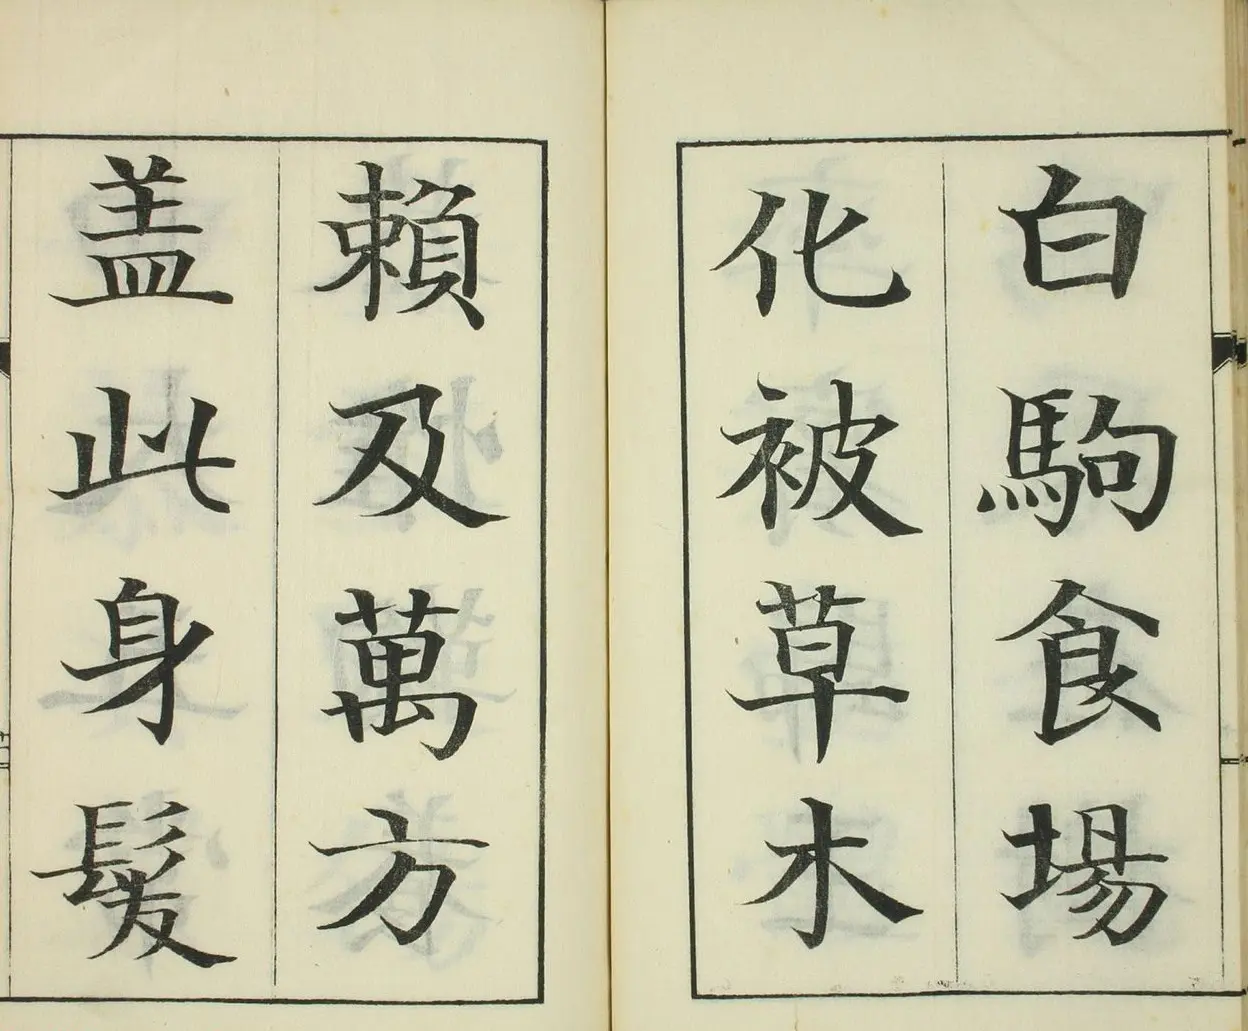 白駒食場
化被草木
賴及萬方
盖此身髮